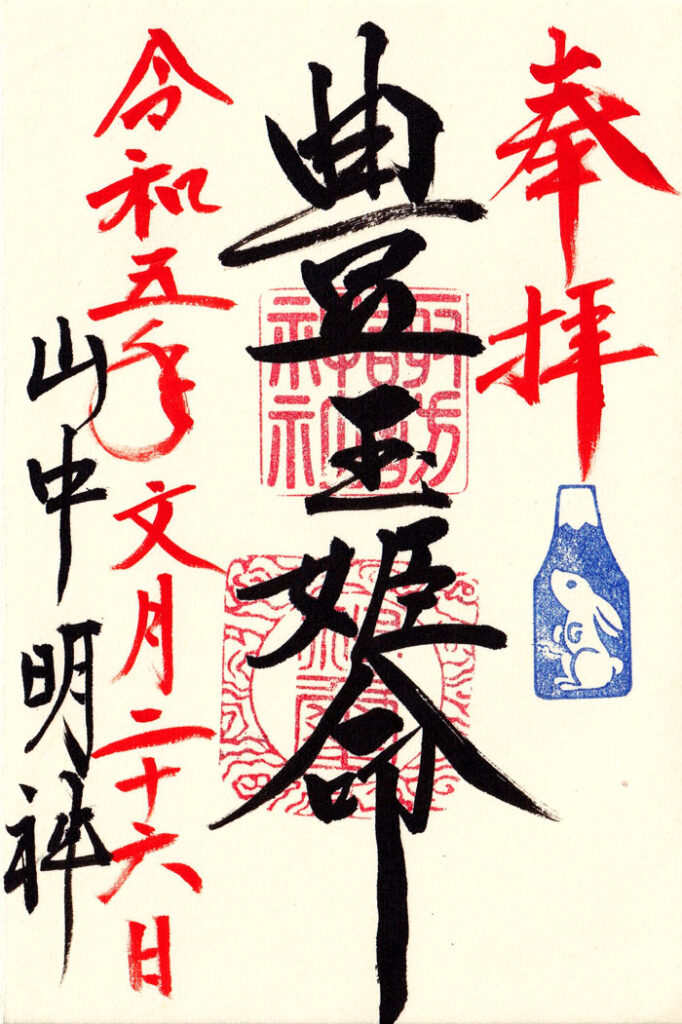 奉拝
豊玉姫命
諏訪
神社
令和五年文月二十六日
山中明神